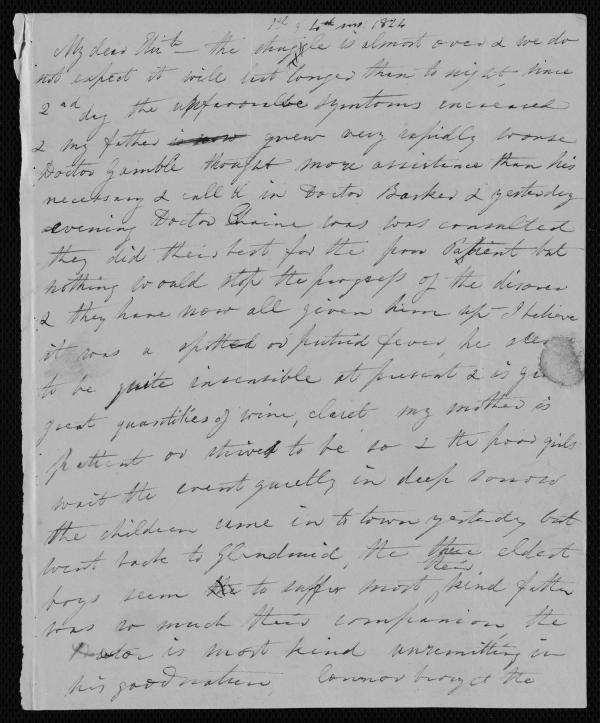 1st of 4th mo. 1824
My dear Elizth – the struggle is almost over & we do
not expect it will last longer than to night, since
2nd day the unfavourable symptoms encreased
& my father is now grew very rapidly worse
Doctor Gamble thought more assistance than his
necessary & call'd in Doctor Barker & yesterday
evening Doctor Cheine was was consulted
they did their best for the poor Patient but
nothing would stop the progress of the disease
& they have now all given him up I believe
it was a spotted or putrid fever, he
to be quite insensible at present & is
great quantities of wine, claret, my mother is
patient or strives to be so & the poor girls
wait the event quietly in deep sorrow
the children came in to town yesterday but
went back to Glendruid, the three eldest
boys seem to suffer most, their kind father
was so much their companion, the
Doctor is most kind unremitting in
his good nature, Connor brought the